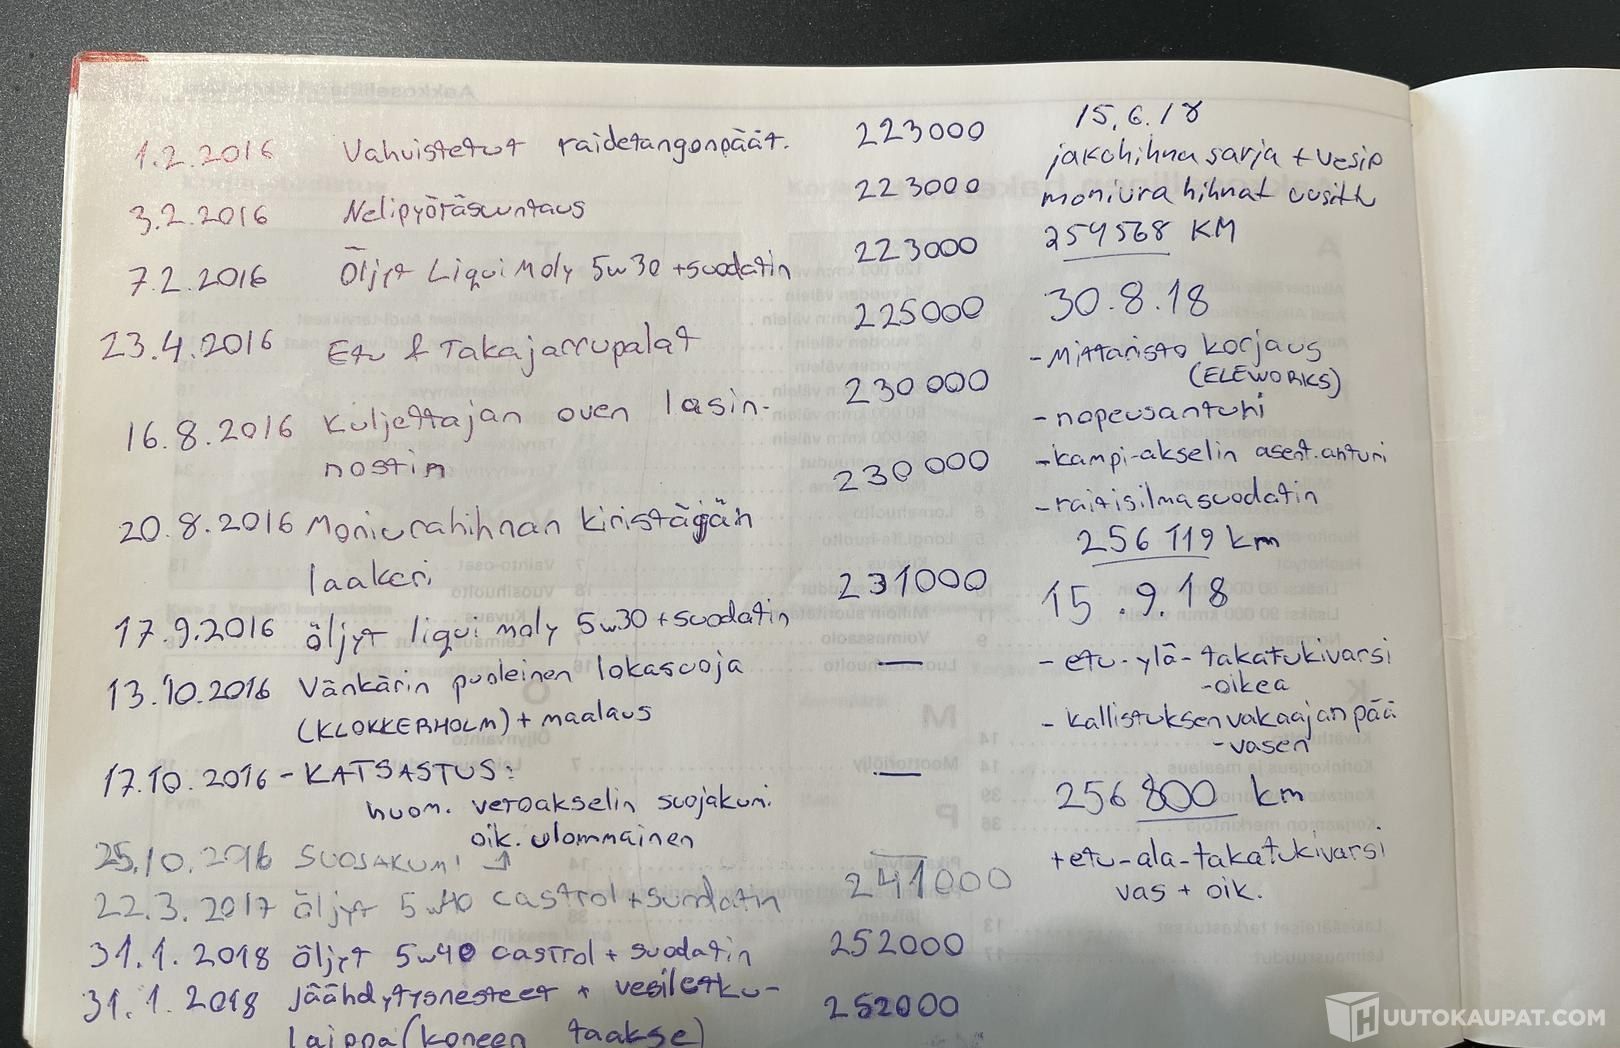 1.2.2016 Vahvistetut raidetangonpäät. 223000
3.2.2016 Nelipyöräsuuntaus 223000
7.2.2016 Öljyt Liqui Moly 5w30 +suodatin 223000
23.4.2016 Etu & Takajarrupalat 225000
16.8.2016 Kuljettajan oven lasin- 230000
nostin
20.8.2016 Moniurahihnan kiristäjän 230000
laakeri
17.9.2016 öljyt liqui moly 5w30 +suodatin 231000
13.10.2016 Vänkärin puoleinen lokasuoja —
(KLOKKERHOLM) + maalaus
17.10.2016 - KATSASTUS: —
huom. vetoakselin suojakumi
oik. ulommainen
25.10.2016 SUOJAKUMI —
22.3.2017 öljyt 5w40 castrol +suodatin 241000
31.1.2018 öljyt 5w40 castrol + suodatin 252000
31.1.2018 Jäähdytysnesteet + vesiletku- 252000
laippa (koneen taakse)
15.6.18
jakohihna sarja + vesip
moniura hihnat uusittu
254568 KM
30.8.18
- Mittaristo korjaus
(ELEWORKS)
- nopeusanturi
- kampi-akselin asent.anturi
- raitisilmasuodatin
256 119 km
15.9.18
- etu-ylä-takatukivarsi
- oikea
- kallistuksenvakaajanpää
- vasen
256 800 km
+ etu-ala-takatukivarsi
vas + oik.
HUUTOKAUPAT.COM